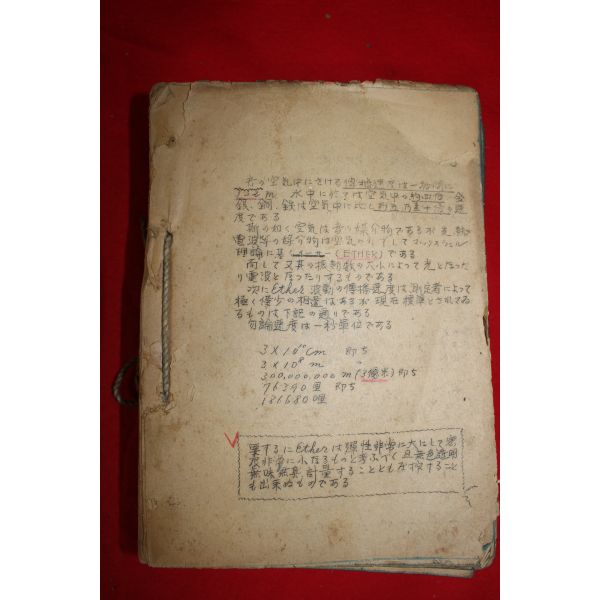 音の空気中に於ける伝播速度は一秒間に
m 水中に於ては空気中の約四倍 金
銀、銅、鉄は空気中に比し約五乃至十倍の速
度である
斯の如く空気は音の媒介物であるが光、熱
電波等の媒介物は空気の外でしてマックスウェル
理論に基く (ETHER)である
而して又其の振動数の大小によって光となった
り電波となったりするものである
次にEther波動の傳播速度は測定者によって
極く僅少の相違はあるが現在標準とされてゐ
るものは下記の通りである
勿論速度は一秒単位である
3×10¹⁰cm 即ち
3×10⁸m 〃
300,000,000m (3億米)即ち
76390里 即ち
186680哩
要するにEtherは弾性非常に大にして密
度非常に小なるものと考ふべく且無色透明
無味無臭、計量することも圧搾すること
も出来ぬものである